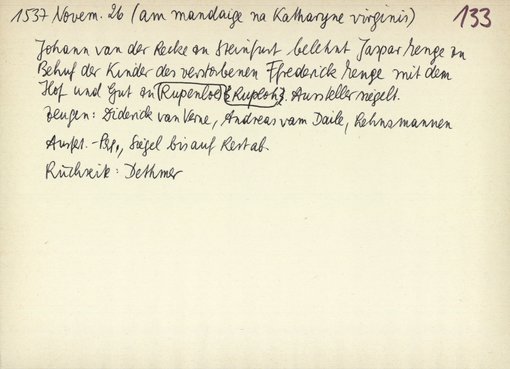 1537 Novem. 26 (am mandaige na Katharyne virginis) 133
Johann van der Recke an Steinfurt belehnt Jaspar Menge zu
Behuf der Kinder des verstorbenen Ffrederick Menge mit dem
Hof und Gut an (Rupenloe) {Ruploh}. Aussteller siegelt.
Zeugen: Diderick van Verne, Andreas vam Daile, Lehnsmannen
Ausf. - Pg., Siegel bis auf Rest ab.
Rückseite: Dethmer